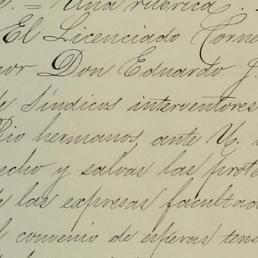 s. = Una rúbrica.
El Licenciado Corne
or Don Eduardo J.
de Síndicos interventores
Rio hermanos, ante V.
echo y salvas las prote
de las expresas facultad
el convenio de esperas ten